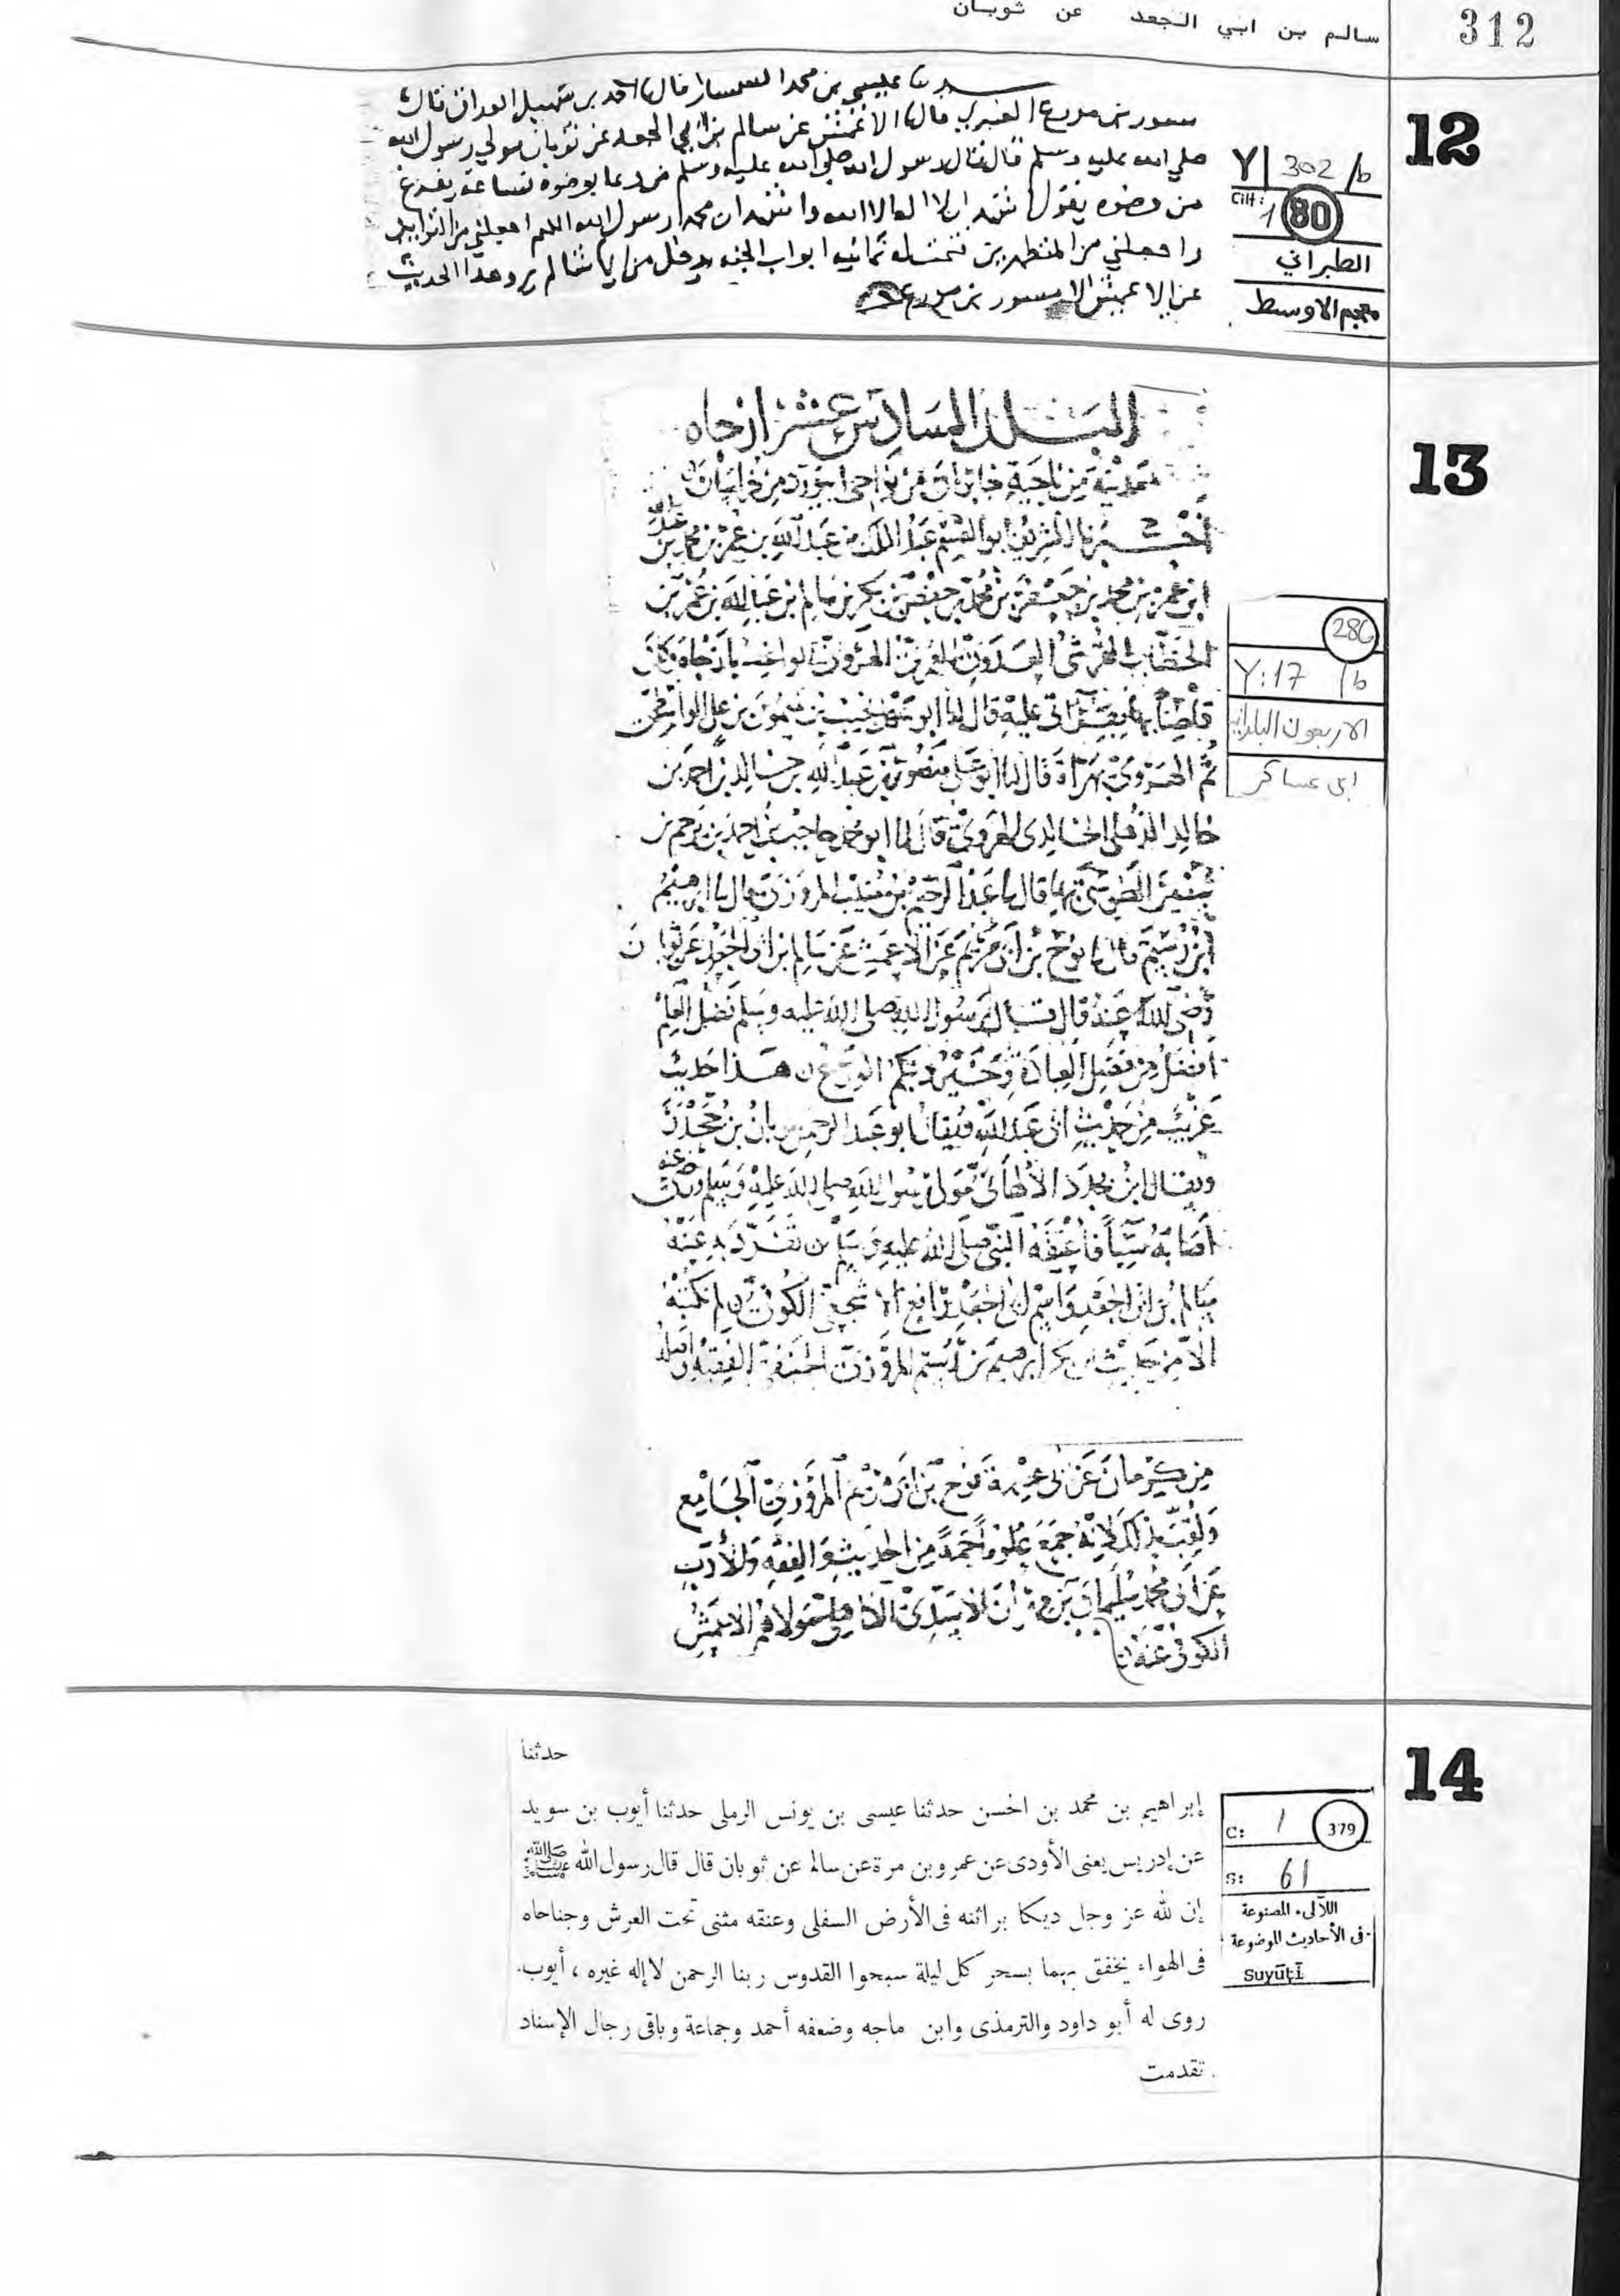 312
سالم بن ابي الجعد عن ثوبان
12
حدثنا عيسى بن محمد السمسار قال نا احمد بن سهيل الوراق قال نا
مسور بن مورع العنبري قال نا الاعمش عن سالم بن ابي الجعد عن ثوبان مولى رسول الله
صلى الله عليه وسلم قال قال رسول الله صلى الله عليه وسلم من دعا بوضوء فساعة يفرغ
من وضوه يقول اشهد ان لا اله الا الله واشهد ان محمدا رسول الله اللهم اجعلني من التوابين
واجعلني من المتطهرين فتحت له ثمانيه ابواب الجنه يدخل من ايها شا لم يرو هذا الحديث
عن الاعمش الا مسور بن مورع
Y 302/b
Cilt: 1 80
الطبراني
معجم الاوسط
13
البلد السادس عشر ازجاه
مدينة من ناحية خابران من نواحي ابيورد من خراسان
أخبرنا الشريف ابو القسم عبد الملك بن عبد الله بن عمر بن محمد بن
ابن عمر بن محمد بن جعفر بن محمد بن حفص بن بكر بن سالم ابن عبد الله بن عمر بن
الخطاب القرشي العدوي العمري الهروي بازجاه وكان
قاضيا بها بقراتي عليه قال انا ابو سهل نجيب بن ميمون بن علي الواسطي
ثم الهروي بهراة قال انا ابو علي منصور بن عبد الله بن خالد بن احمد بن
خالد الذهلي الخالدي الهروي قال انا ابو محمد حاجب بن احمد بن يرحم بن
سفين الطوسي بها قال نا عبد الرحيم بن منيب المروزي قال نا ابرهيم
ابن رستم قال نا نوح بن ابي مريم عن الاعمش عن سالم بن ابي الجعد عن ثوبان
رضي الله عنه قال قال رسول الله صلى الله عليه وسلم فضل العلم
افضل من فضل العبادة وخير دينكم الورع هذا حديث
غريب من حديث ابي عبد الله فيقال ابو عبد الرحمن ثوبان بن جحدر
ويقال ابن بجدد الالهاني مولى رسول الله صلى الله عليه وسلم وكان
أصابه سبيا فأعتقه النبي صلى الله عليه وسلم تفرد به عنه
سالم بن ابي الجعد واسم ابي الجعد رافع الاشجعي الكوفي لم نكتبه
الا من حديث ابي بكر ابرهيم بن رستم المروزي الحنفي الفقيه واصله
من كرمان عن ابي عصمة نوح بن ابي مريم المروزي الجامع
ولقب بذلك لانه جمع علوما جمة من الحديث والفقه والادب
عن ابي محمد سليمان بن مهران الاسدي الكاهلي مولاهم الاعمش
الكوفي عنه
286
Y: 17 /b
الاربعون البلدانية
ابن عساكر
14
حدثنا
إبراهيم بن محمد بن الحسن حدثنا عيسى بن يونس الرملى حدثنا أيوب بن سويد
عن إدريس يعنى الأودى عن عمرو بن مرة عن سالم عن ثوبان قال قال رسول الله ﷺ
إن لله عز وجل ديكا براثنه فى الأرض السفلى وعنقه مثنى تحت العرش وجناحاه
فى الهواء يخفق بهما بسحر كل ليلة سبحوا القدوس ربنا الرحمن لا إله غيره ، أيوب.
روى له أبو داود والترمذى وابن ماجه وضعفه أحمد وجماعة وباقى رجال الإسناد
تقدمت
C: 1 379
S: 61
اللآلىء المصنوعة
فى الأحاديث الموضوعة
Suyūṭī